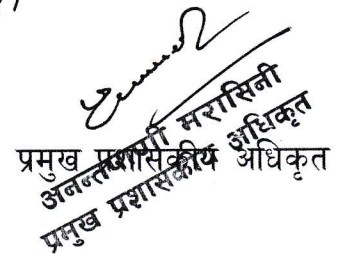 प्रमुख प्रशासकीय अधिकृत
अनन्तमणी मरासिनी
प्रमुख प्रशासकीय अधिकृत